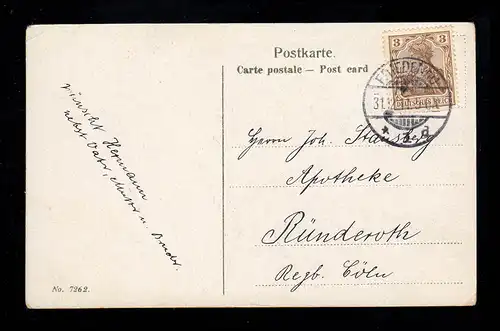 Postkarte.
Carte postale — Post card
3
DEUTSCHES REICH
31.12.
* a
wünscht Hermann
nebst Vater, Mutter u. Bruder.
Herrn Joh.
Apotheke
Ründeroth
Regb. Cöln
No. 7262.